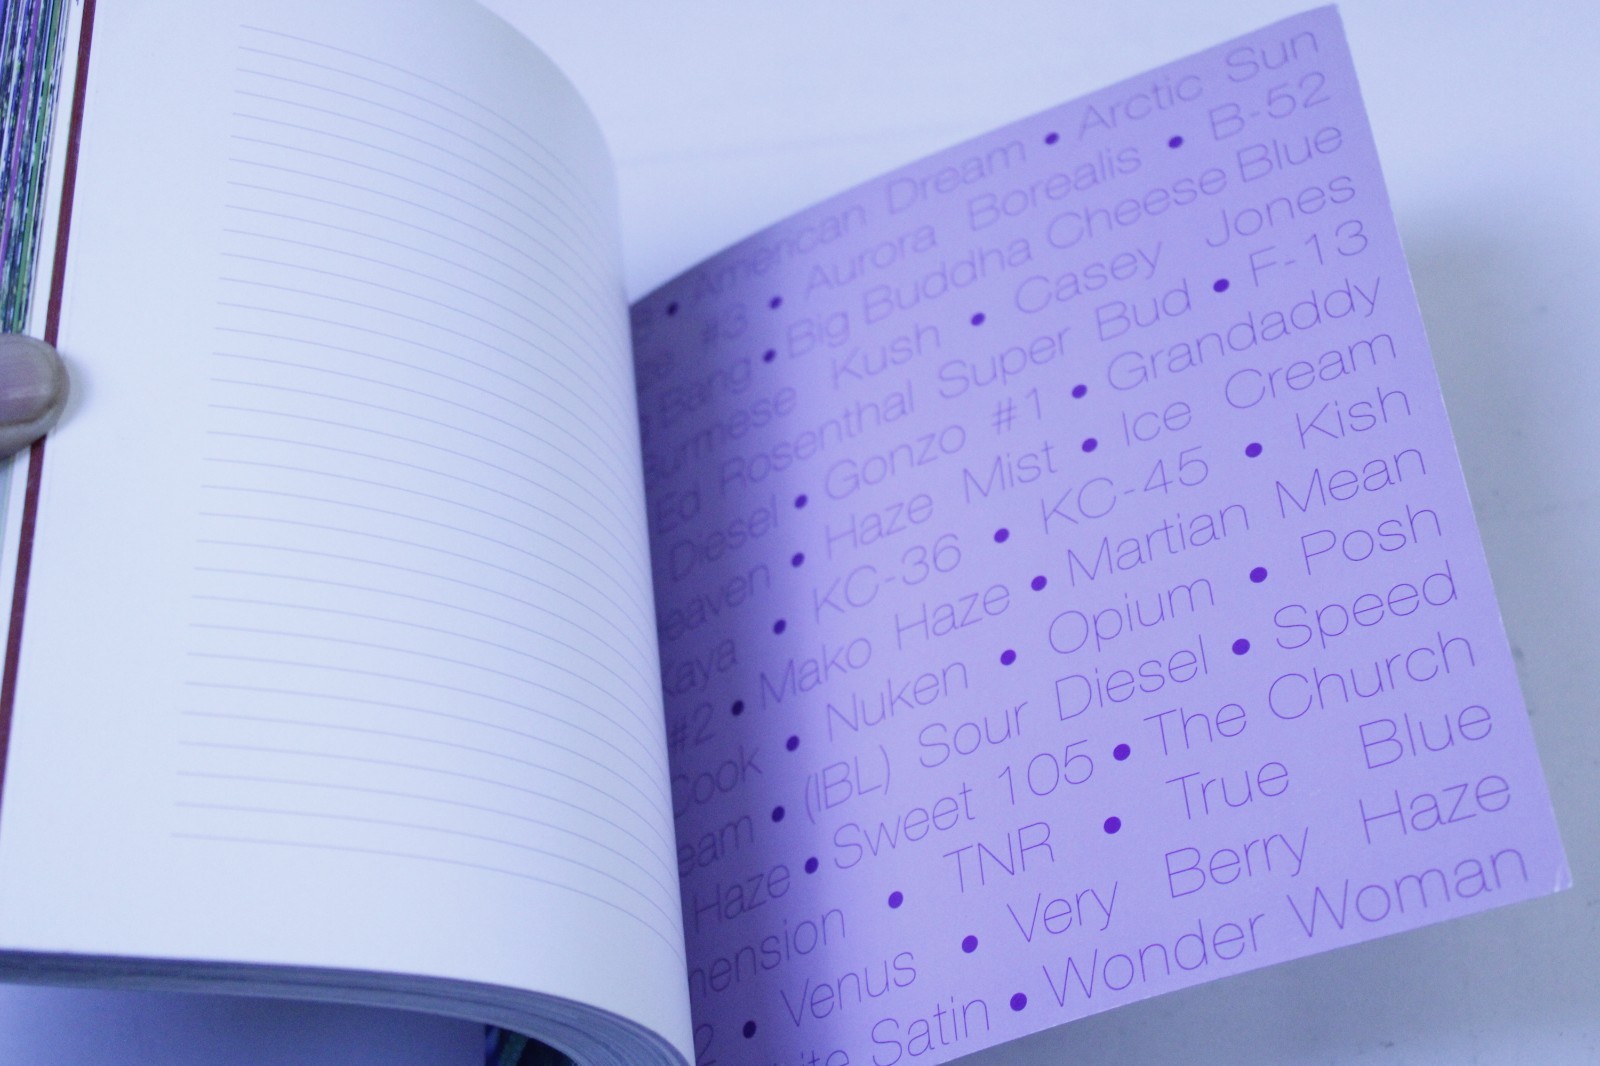 • American Dream • Arctic Sun
#3 • Aurora Borealis • B-52
Bang • Big Buddha Cheese Blue
Kush • Casey Jones
Ed Rosenthal Super Bud • F-13
Diesel • Gonzo #1 • Grandaddy
• Haze Mist • Ice Cream
Kaya • KC-36 • KC-45 • Kish
#2 • Mako Haze • Martian Mean
• Nuken • Opium • Posh
• (IBL) Sour Diesel • Speed
Haze • Sweet 105 • The Church
• TNR • True Blue
• Venus • Very Berry Haze
Satin • Wonder Woman